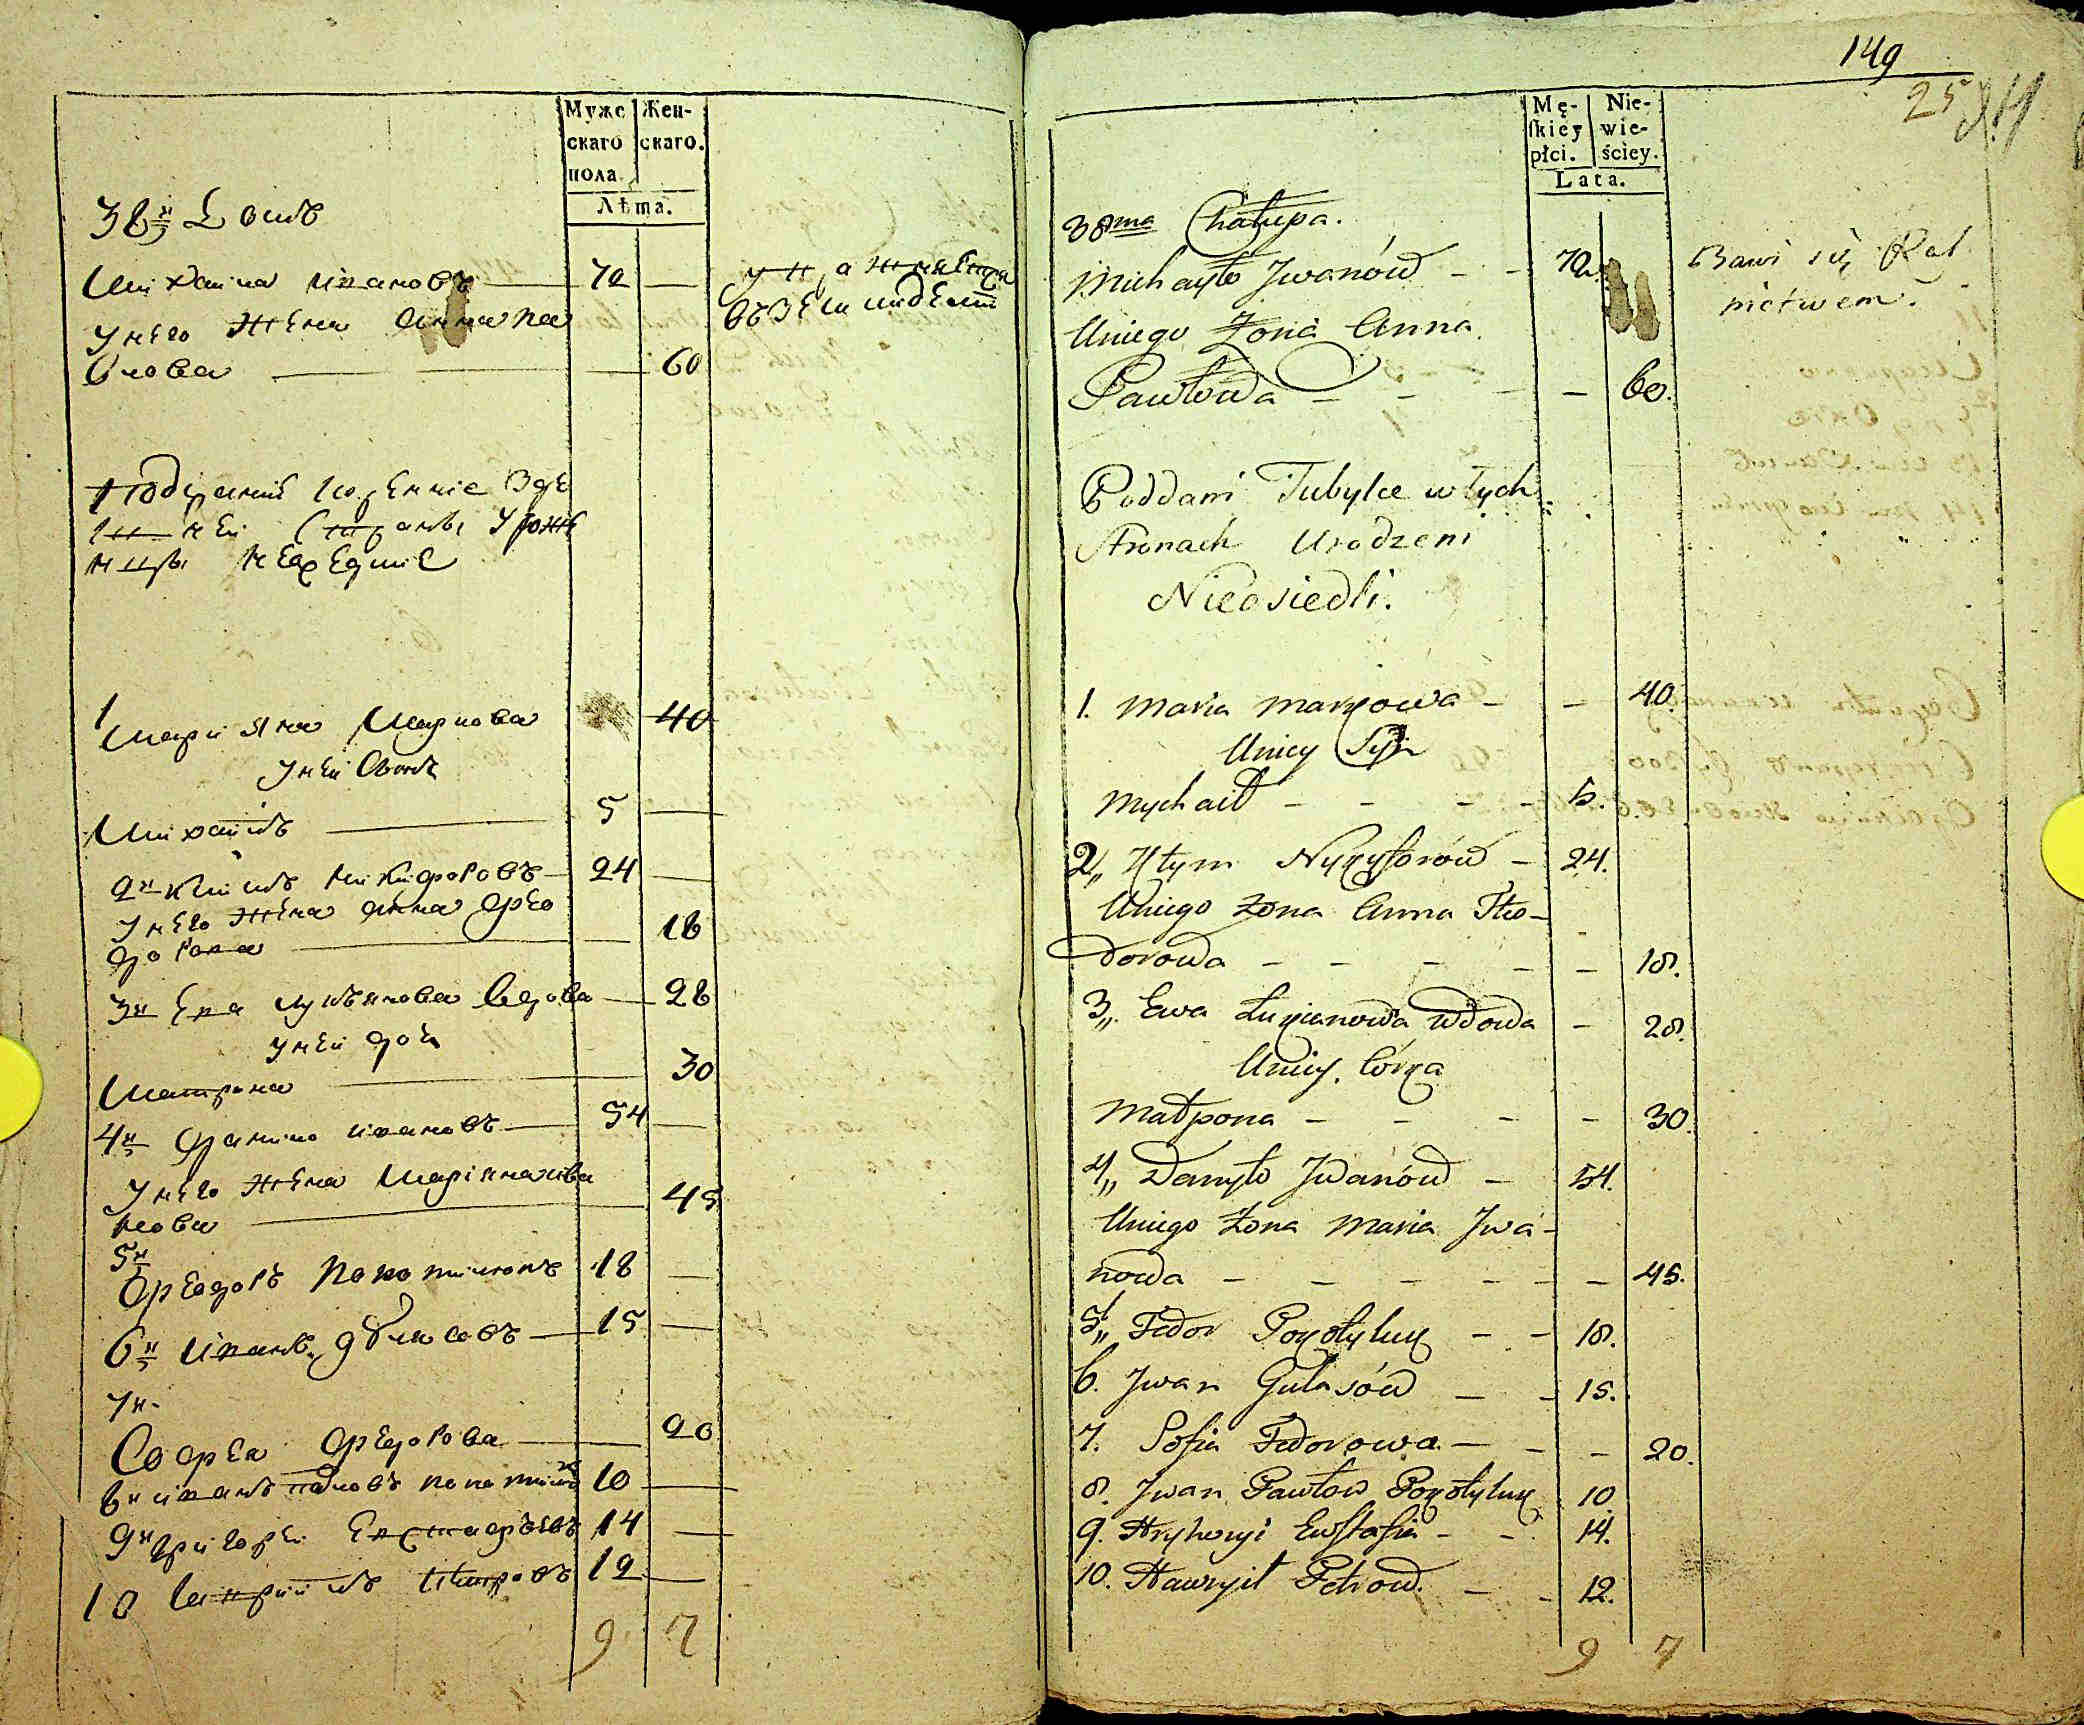 Мужескаго пола
Женскаго.
Лѣта.
38я Домъ
Михаила Ивановъ 70
Унего Жена Анна Па
влова 60
1
Марияна Маркова 40
Уней Сынъ
Михайлъ 5
2я Климъ Никифоровъ 24
Унего Жена Анна Фео
дорова 18
3я Ева Лукьянова вдова 28
Уней дочь
Матрона 30
4я Данило Ивановъ 54
Унего Жена Маріяна Ива
нова 45
5я
Феодоръ 18
6я Иванъ 15
7я
Софея Федорова 20
8я Иванъ Павловъ 10
9я Григорей 14
10 Гавриилъ Петровъ 12
9 7
149
25
Mę-
skiey
płci.
Nie-
wie-
ściey.
Lata.
38ma Chałupa.
Michayło Jwanów - - 70. Bawi się Rol
nictwem.
Uniego Żona Anna
Pawłowa - - - - 60.
Poddani Tubylce wtych
Stronach Urodzeni
Nieosiedli.
1. Maria Markowa - - 40.
Uniey Syn
Mychaił - - - - 5.
2,, Kłym Nykyforów - 24.
Uniego Żona Anna Teo-
dorowa - - - - - 18.
3,, Ewa Łukianowa wdowa - 28.
Uniey Córka
Matrona - - - - 30.
4,, Danyło Jwanów - 54.
Uniego Żona Maria Jwa-
nowa - - - - - - 45.
5,, Fedor Pokotyluk - - 18.
6. Jwan Gulasów - - 15.
7. Sofia Fedorowa - - - 20.
8. Jwan Pawłow Pokotyluk 10.
9. Hryhoryi Eustafia - - 14.
10. Hawryił Petrow - - 12.
9 7